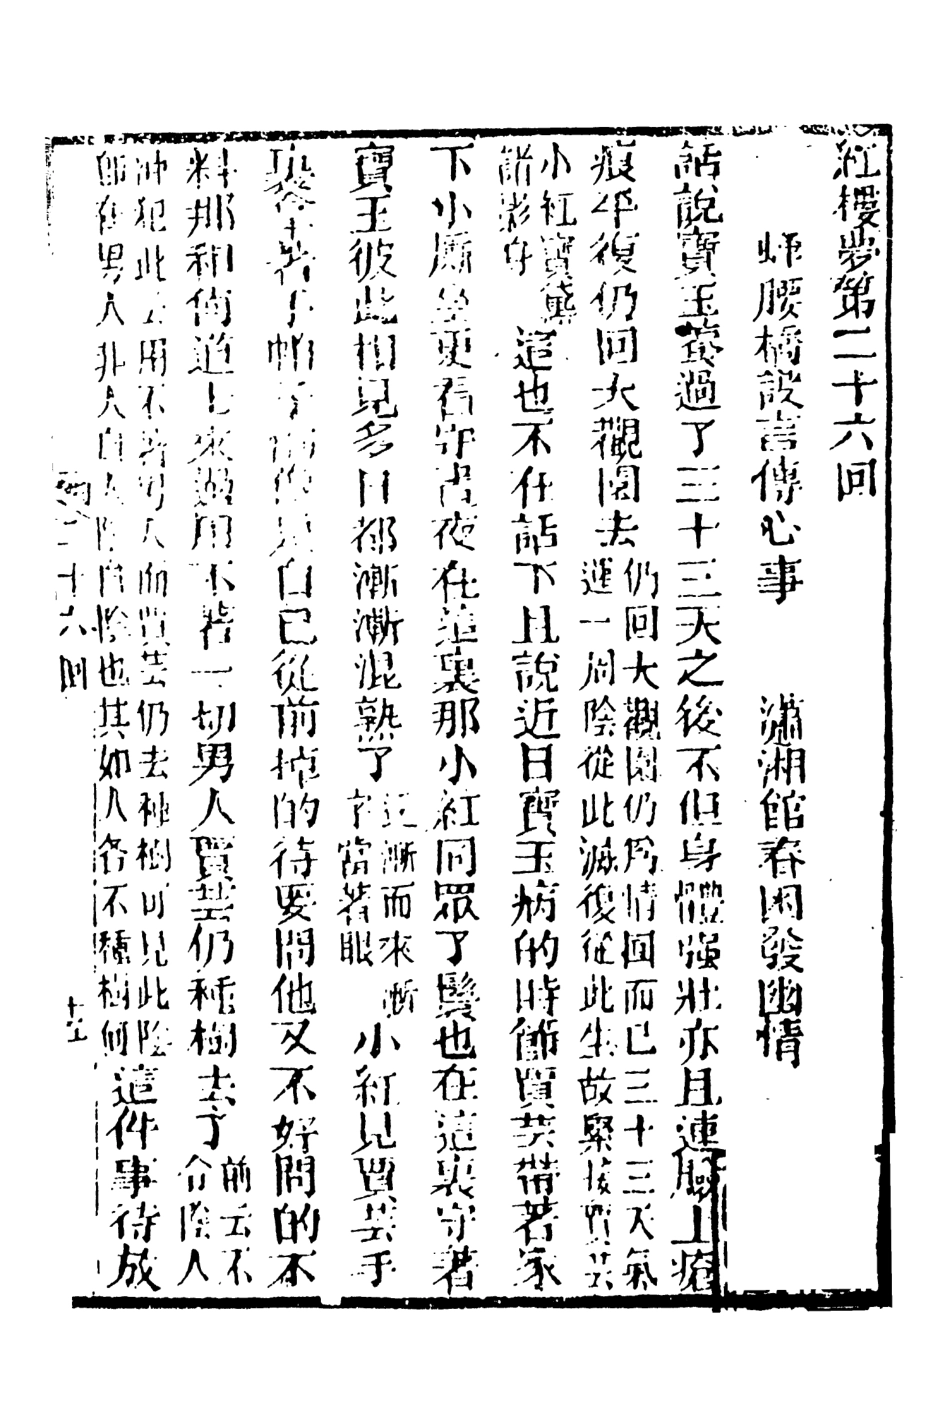 紅樓夢第二十六回
蜂腰橋設言傳心事　瀟湘館春困發幽情
話說寶玉養過了三十三天之後不但身體強壯亦且連臉上瘡
痕平復仍回大觀園去
仍回大觀園仍爲情圓而已三十三天氣
運一周陰從此滅復從此生故緊接賈芸
小紅寶黛
諸影
這也不在話下且說近日寶玉病的時節賈芸帶著家
下小厮坐更看守晝夜在這裏那小紅同眾丫鬟也在這裏守著
寶玉彼此相見多日都漸漸混熟了
漸而來漸
字當著眼
小紅見賈芸手
裏拿著手帕子倒像是自己從前掉的待要問他又不好問的不
料那和尚道士來過用不著一切男人賈芸仍種樹去了
前云不
介陰人
沖犯此云用不著男人而賈芸仍去種樹可見此陰
卽在男人非人自人陰自陰也其如人各不種樹何
這件事待放
二十六回